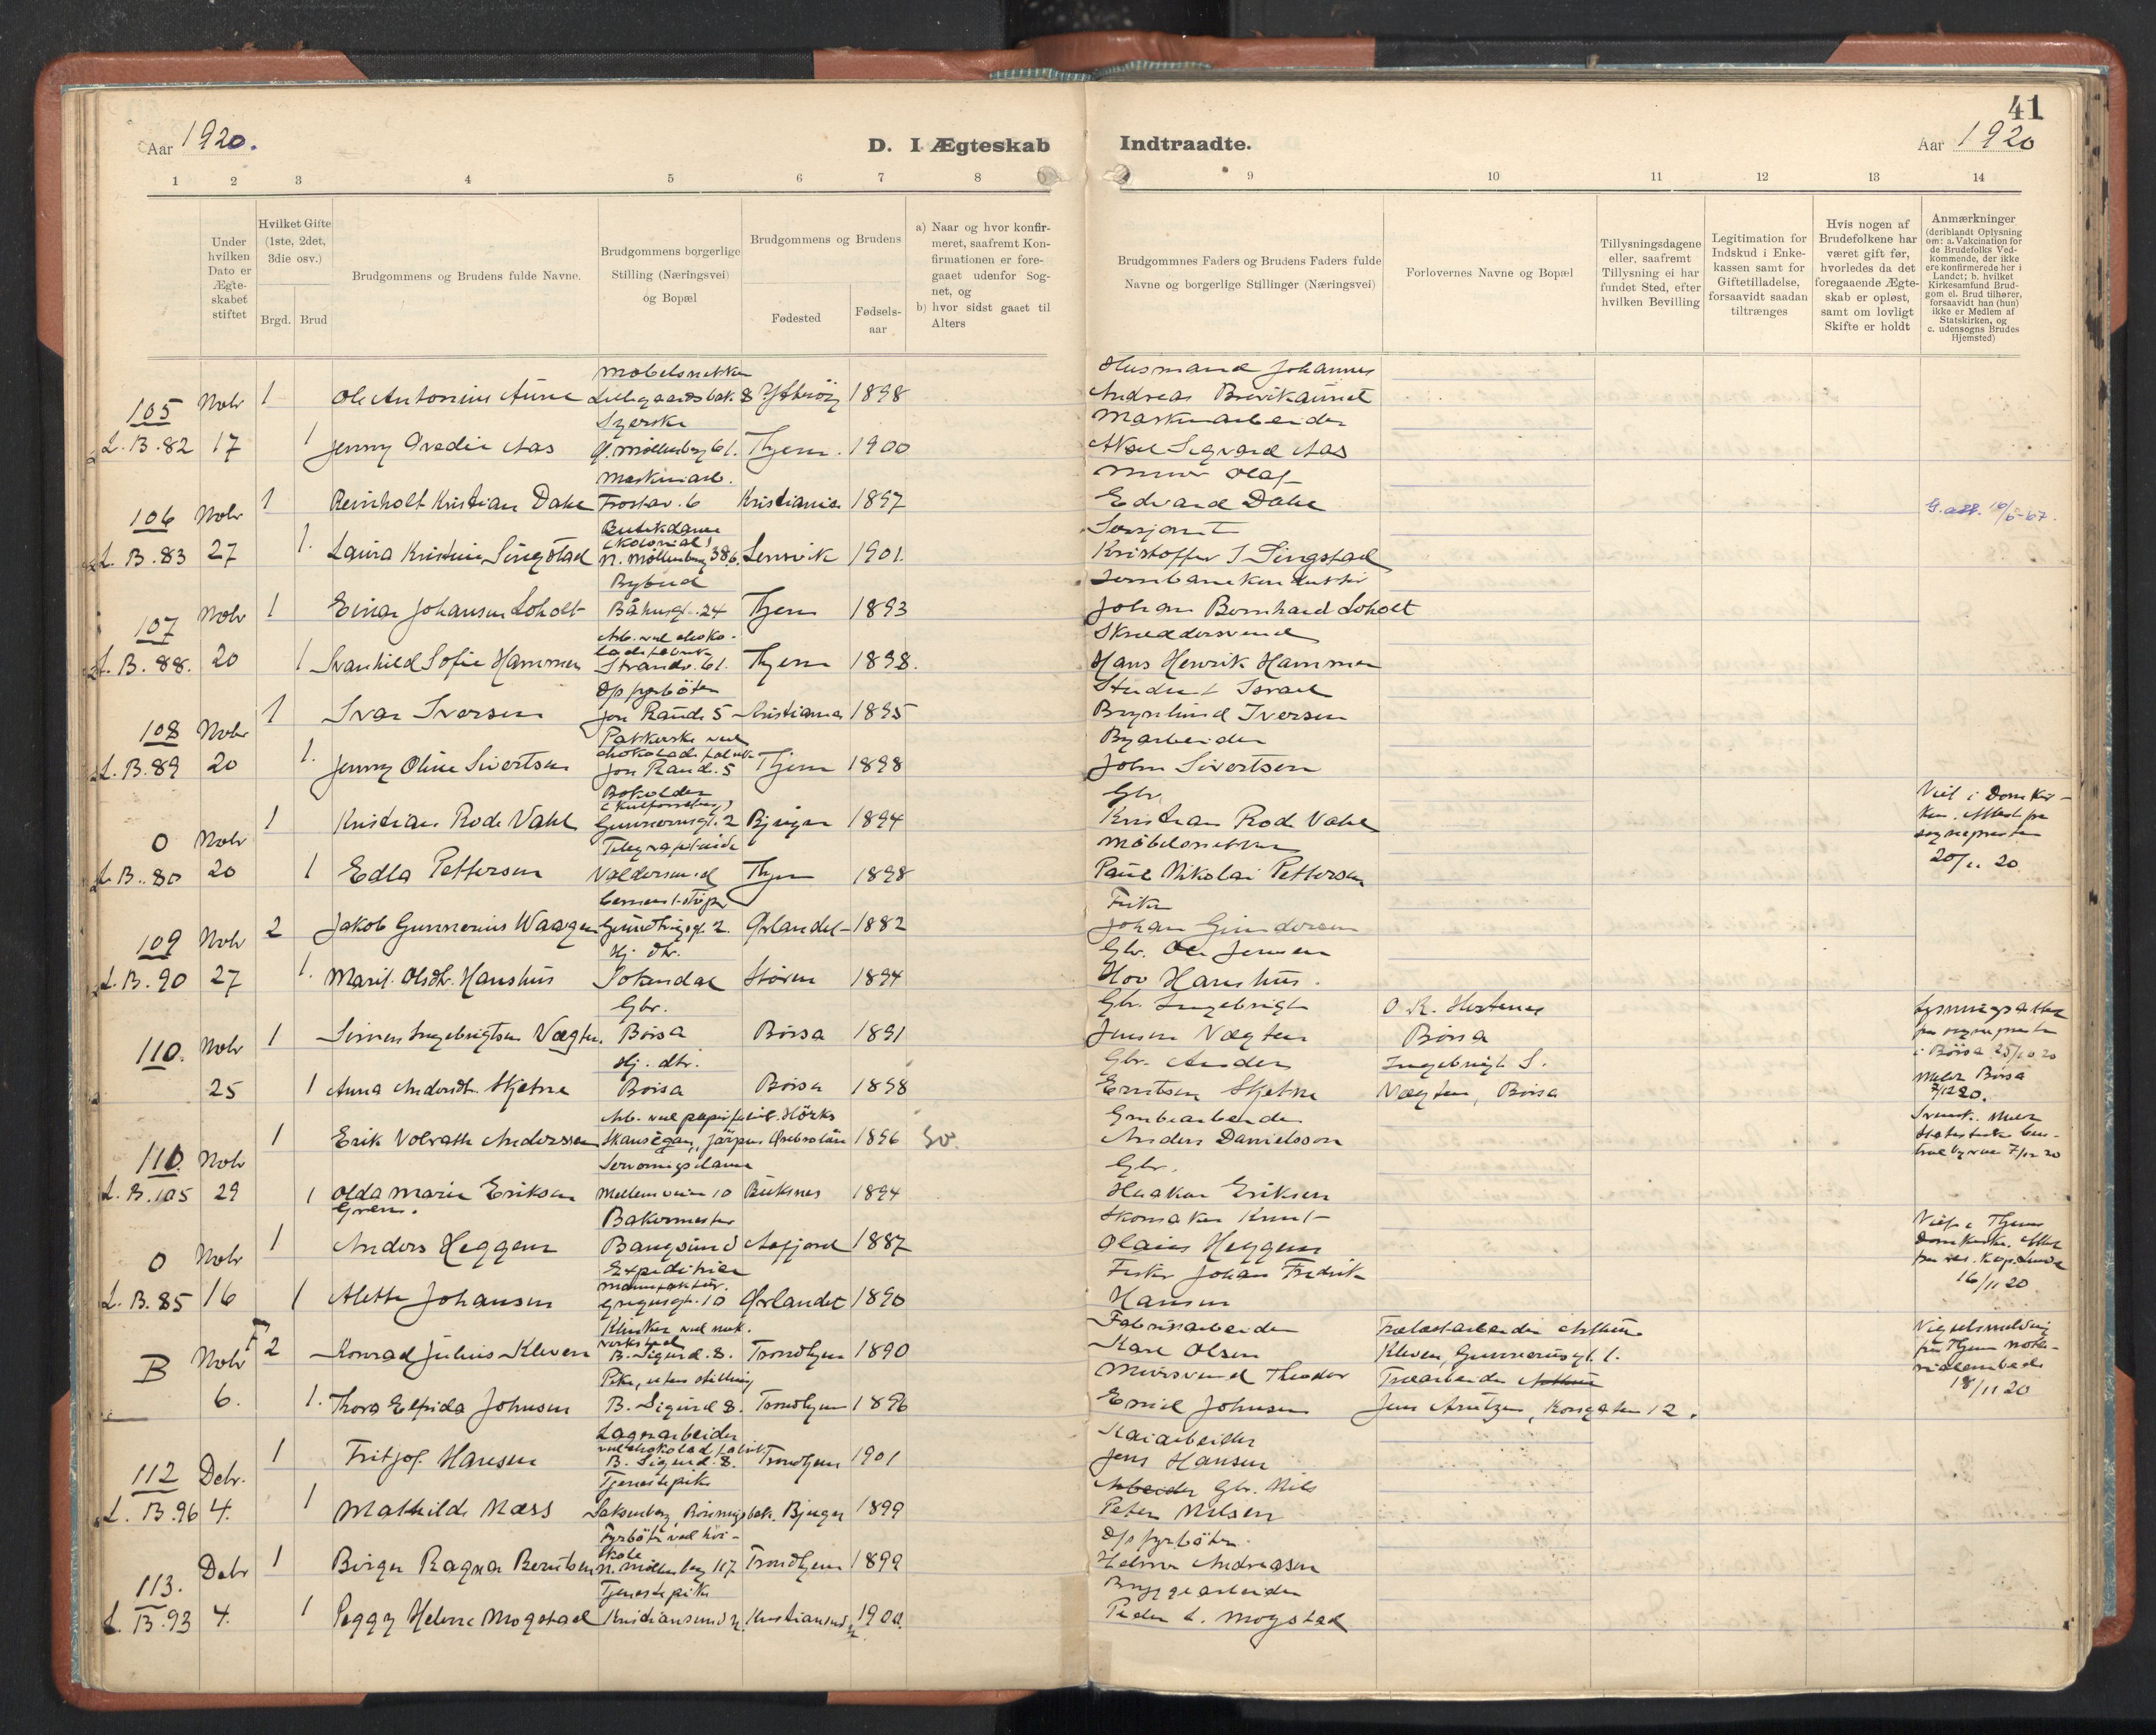 41
Aar 1920.
D. I Ægteskab
Indtraadte.
Aar 1920
1 2 3 4 5 6 7 8
9 10 11 12 13 14
Under hvilken Dato er Ægteskabet stiftet
Hvilket Gifte (1ste, 2det, 3die osv.)
Brgd. Brud
Brudgommens og Brudens fulde Navne.
Brudgommens borgerlige Stilling (Næringsvei) og Bopæl
Brudgommens og Brudens
Fødested
Fødsels-aar
a) Naar og hvor konfir-
meret, saafremt Kon-
firmationen er fore-
gaaet udenfor Sog-
net, og
b) hvor sidst gaaet til
Alters
Brudgommnes Faders og Brudens Faders fulde
Navne og borgerlige Stillinger (Næringsvei)
Forlovernes Navne og Bopæl
Tillysningsdagene
eller, saafremt
Tillysning ei har
fundet Sted, efter
hvilken Bevilling
Legitimation for
Indskud i Enke-
kassen samt for
Giftetilladelse,
forsaavidt saadan
tiltrænges
Hvis nogen af
Brudefolkene har
været gift før,
hvorledes da det
foregaaende Ægte-
skab er opløst,
samt om lovligt
Skifte er holdt
Anmærkninger
(deriblandt Oplysning
om: a. Vakcination for
de Brudefolks Ved-
kommende, der ikke
ere konfirmerede her i
Landet; b. hvilket
Kirkesamfund Brud-
gom el. Brud tilhører,
forsaavidt han (hun)
ikke er Medlem af
Statskirken, og
c. udensogns Brudes
Hjemsted)
Møbelsnekker
Husmand Johannes
105 Nobr 1 Ole Antonius Aune Lillegaardsbak 8 Ytterøy 1898
Andreas Brevikaunet
Syerske
Maskinarbeider
L.B.82 17 1 Jenny Aas Ø. Møllenberg 61. Thjem. 1900
Aksel Sigvard Aas
Maskinarb.
Murer Olaf
106 Nobr 1 Reinholt Kristian Dahl Frostav. 6 Kristiania 1897
Edvard Dahl
16/6-67.
Butikdame
(Kolonial)
Sersjant
L.B.83 27 1. Laura Kristine Singstad N. Møllenberg 38b. Lensvik 1901.
Kristoffer J Singstad
Bybud
Jernbanekonduktør
107 Nobr 1 Einar Johansen Loholt Båhusg. 24 Thjem 1893
Johan Bernhard Loholt
Arb. ved choko-
ladefabrik
Skreddersvend
L.B.88. 20 1 Svanhild Sofie Hammer Strandv. 61. Thjem 1898.
Hans Henrik Hammer
Opfyrbøter
Student Israel
108 Nobr 1 Ivar Iversen Jon Raudes 5 Kristiania 1895
Brynhild Iversen
Pakkerske ved
chokoladefabrik
Byarbeider
L.B.89 20 1. Jenny Oline Sivertsen Jon Raudes 5 Thjem 1898
John Sivertsen
Bokholder
Gbr.
O Nobr 1 Kristian Rode Vahl Gunnerusgt. 2 Bjugn 1894
Kristian Rode Vahl
Viet i Domkir-
ken. Attest fra
sognepresten
20/11 20.
Telegrafistinde
Møbelsnekker
L.B.80 20 1 Edla Pettersen Valdersund Thjem 1898
Paul Nikolai Pettersen
Cementstøper
Fisker
109 Nobr 2 Jakob Gunnerius Waagen Grundtvigsgt. 2. Ørlandet 1882
Johan Gundersen
Hj. dtr.
Gbr. Ole Jensen
L.B.90 27 1. Marit Olsdtr. Hanshus Soknedal Støren 1894
Hov Hanshus.
Gbr.
Gbr. Ingebrigt
O. R. Hestenes
110. Nobr 1 Simen Ingebrigtsen Vægten. Børsa Børsa 1891
Jensen Vægten
Børsa
Lysningsattest
fra sognepresten
i Børsa 25/10 20
Meldt Børsa
7/12 20.
Hj. dtr.
Gbr. Anders
Ingebrigt S.
25 1 Anna Andersdtr. Skjetne Børsa Børsa 1898
Erntsen Skjetne
Vægten, Børsa
Arb. ved papirfabrik. Hörks
Grubearbeider
111. Nobr 1 Erik Volrath Andersson Skansegan, Järpen Örebrolän 1896
Anders Danielsson
Serveringsdame
Gbr.
L.B.105 29 1 Olda Marie Eriksen Mellemveien 10 Buksnes 1894
Haakon Eriksen
Bakermester
Skomaker Knut
O Nobr 1 Anders Heggem Bangsund Aafjord 1887
Olaus Heggem
Viet i Thjem
Domkirke. Attest
fra res. kap. Lunde
16/11 20.
Expeditrice
manufaktur.
Fisker Johan Fredrik
L.B.85 16 1 Alette Johansen 10 Ørlandet 1890
Hansen
Klinker ved mek.
verksted
Fabrikarbeider
B Nobr F 2 Konrad Julius Kleven B. Sigurd. 8. Trondhjem 1890
Karl Olsen
Kleven, Gunnerusgt. 1.
Vigselsmelding
fra Thjem
18/11 20
Pike, uten stilling
Mursvend Theodor
Træarbeider
6. 1. Thora Elfrida Johnsen B. Sigurd 8. Trondhjem 1896
Emil Johnsen
Jens Arntzen, Kongsgaten 12.
Lagerarbeider
ved chokoladefabrik
Kaiarbeider
112 Debr. 1 Fritjof Hansen B. Sigurd. 8. Trondhjem 1901
Jens Hansen
Tjenestepike
Arbeider Gbr. Nils
L.B.96 4. 1 Mathilde Næss Bjugn 1899
Peter Nilsen
Fyrbøter ved høi-
skole
Opfyrbøter
113. Debr 1 Birger Ragnar Berntsen N. Møllenberg 117 Trondhjem 1899
Helmer Andreasen
Tjenestepike
Bryggearbeider
L.B.93 4. 1 Peggy Helene Mogstad Kristiansund N. Kristiansund N. 1900.
Peder L. Mogstad